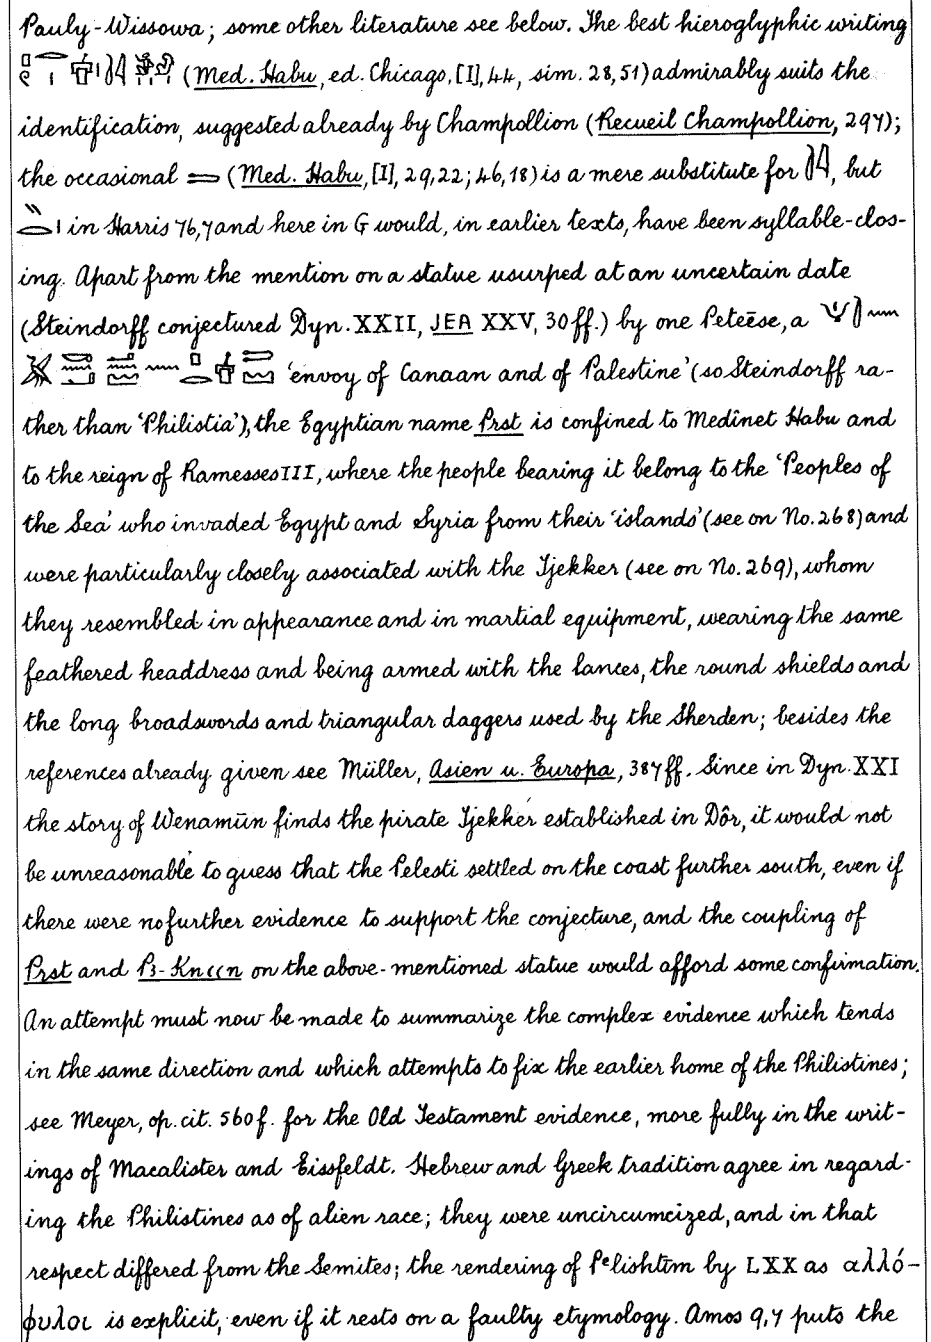 Pauly-Wissowa; some other literature see below. The best hieroglyphic writing
(Med. Habu, ed. Chicago, [I], 44, sim. 28, 51) admirably suits the
identification, suggested already by Champollion (Recueil Champollion, 297);
the occasional (Med. Habu, [I], 29, 22; 46, 18) is a mere substitute for , but
in Harris 76, 7 and here in G would, in earlier texts, have been syllable-clos-
ing. Apart from the mention on a statue usurped at an uncertain date
(Steindorff conjectured Dyn. XXII, JEA XXV, 30 ff.) by one Peteēse, a
'envoy of Canaan and of Palestine' (so Steindorff ra-
ther than 'Philistia'), the Egyptian name Prst is confined to Medînet Habu and
to the reign of Ramesses III, where the people bearing it belong to the 'Peoples of
the Sea' who invaded Egypt and Syria from their 'islands' (see on No. 268) and
were particularly closely associated with the Tjekker (see on No. 269), whom
they resembled in appearance and in martial equipment, wearing the same
feathered headdress and being armed with the lances, the round shields and
the long broadswords and triangular daggers used by the Sherden; besides the
references already given see Müller, Asien u. Europa, 387 ff. Since in Dyn. XXI
the story of Wenamūn finds the pirate Tjekker established in Dôr, it would not
be unreasonable to guess that the Pelesti settled on the coast further south, even if
there were no further evidence to support the conjecture, and the coupling of
Prst and Pꜣ-Knꜥꜥn on the above-mentioned statue would afford some confirmation.
An attempt must now be made to summarize the complex evidence which tends
in the same direction and which attempts to fix the earlier home of the Philistines;
see Meyer, op. cit. 560 f. for the Old Testament evidence, more fully in the writ-
ings of Macalister and Eissfeldt. Hebrew and Greek tradition agree in regard-
ing the Philistines as of alien race; they were uncircumcized, and in that
respect differed from the Semites; the rendering of Pᵉlishtīm by LXX as αλλό-
φυλοι is explicit, even if it rests on a faulty etymology. Amos 9, 7 puts the